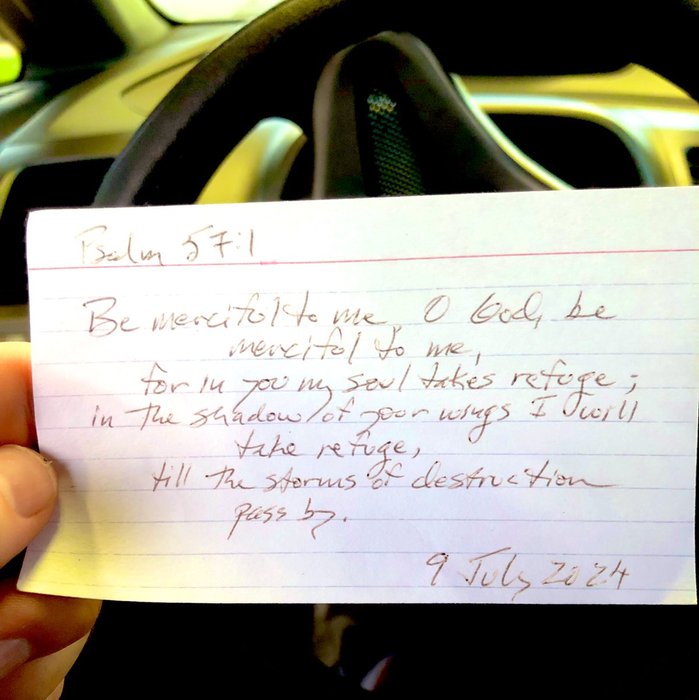 Psalm 57:1
Be merciful to me, O God, be
merciful to me,
for in you my soul takes refuge;
in the shadow of your wings I will
take refuge,
till the storms of destruction
pass by.
9 July 2024